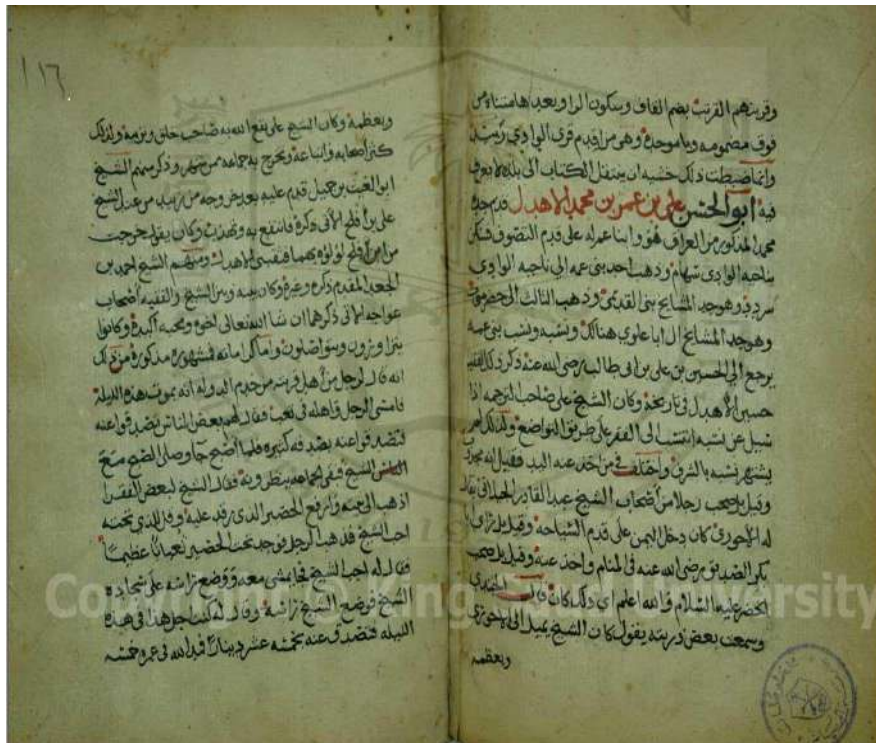 وقريتهم القرتب بضم القاف وسكون الرا وبعدها مثناه من
فوق مضمومه وبا موحدة وهي من اقدم قرى الوادي زبيد
وانما ضبطت ذلك خشيه ان ينتقل الكتاب الى بلد لا يعرف
فيه ابو الحسن علي بن عمر بن محمد الاهدل قدم جده
محمد المذكور من العراق هو وابنا عم له على قدم التصوف فسكن
بناحيه الوادي سهام وذهب احد بني عمه الى ناحيه الوادي
سردد وهو جد المشايخ بني القديمي وذهب الثالث الى حضرموت
وهو جد المشايخ ال ابا علوي هنالك ونسبه ونسب بني عمه
يرجع الى الحسين بن علي بن ابي طالب رضي الله عنه ذكر ذلك الفقيه
حسين الاهدل في تاريخه وكان الشيخ علي صاحب الترجمه اذا
سيل عن نسبه انتسب الى الفقر على طريق التواضع ولذلك لم
يشتهر نسبه بالشرف واختلف في من اخذ عنه اليد فقيل انه مجذوب
وقيل بل صحب رجلا من اصحاب الشيخ عبد القادر الجيلاني يقال
له الاحوري كان دخل اليمن على قدم السياحه وقيل بل راى ابا
بكر الصديق رضي الله عنه في المنام واخذ عنه وقيل بل صحب
الخضر عليه السلام والله اعلم اي ذلك كان قال الجندي
وسمعت بعض ذريته يقول كان الشيخ يميل الى الاحوري
ويعظمه
١١٦
ويعظمه وكان الشيخ علي نفع الله به صاحب خلق وتربيه ولذلك
كثر اصحابه واتباعه وتخرج به جماعه ممن شهر وذكر منهم الشيخ
ابو الغيث بن جميل قدم عليه بعد خروجه من زبيد من عند الشيخ
علي بن افلح الاتي ذكره فانتفع به وتهذب وكان يقول خرجت
من ابن افلح لؤلؤه بهما فثقبني الاهدل ومنهم الشيخ احمد بن
الجعد المقدم ذكره وغيره وكان بينه وبين الشيخ والفقيه اصحاب
عواجه الاتي ذكرهما ان شا الله تعالى اخوه ومحبه اكيده وكانوا
يتزاورون ويتواصلون واما كراماته فشهوره مذكورة من ذلك
انه قال لرجل من اهل قريته من خدم الدوله انه يموت هذه الليله
فامسى الرجل واهله في تعب فقال لهم بعض الناس تصدقوا عنه
فتصدقوا عنه بصدقه كثيره فلما اصبح جا وصلى الصبح مع
الشيخ فبقي الجماعه ينظرونه فقال الشيخ لبعض الفقرا
اذهب الى بيته وارفع الحصير الذي رقد عليه وقل للذي تحته
اجب الشيخ فذهب الرجل فوجد تحت الحصير ثعبانا عظيما
فقال له اجب الشيخ فجا يمشي معه ووضع راسه على سجاده
الشيخ فوضع الشيخ راسه وقال له كنت اجل هذا في هذه
الليله فتصدق عنه بخمسه عشر دينارا فمد الله في عمره خمسه
Copyright © King Saud University